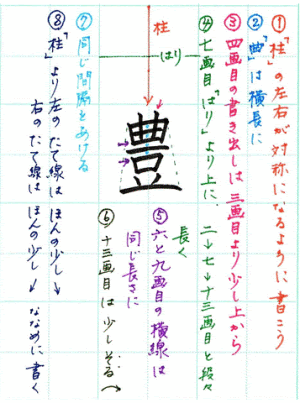 ①「柱」の左右が対称になるように書こう
②「曲」は横長に
③四画目の書き出しは三画目より少し上から
④七画目「はり」より上に、二→七→十三画目と段々
長く
⑤六と九画目の横線は
同じ長さに
⑥十三画目は少しそる
柱
はり
豊
⑦同じ間隔をあける
⑧「柱」より左のたて線はほんの少し↓
右のたて線はほんの少し↓ ななめに書く